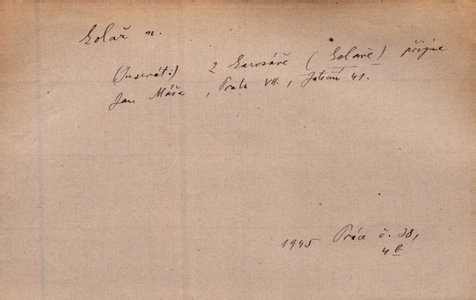 kolář m.
(Inserát.) 2 karosáře (koláře) přijme
Jan Máša, Praha VII., Jateční 41.
1945 Práce č. 28,
4 b